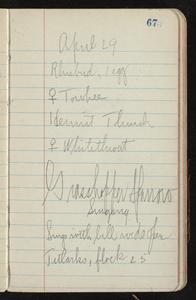 67
April 29
Bluebird, 1 egg
♀ Towhee
Hermit Thrush
♀ Whitethroat
Grasshopper Sparrow
Singing
Sings with bill wide open
Titlarks, flock 25